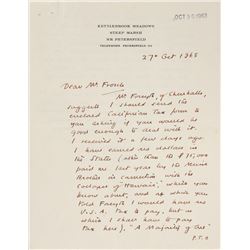 KETTLEBROOK MEADOWS
STEEP MARSH
NR PETERSFIELD
TELEPHONE PETERSFIELD
OCT
27th Oct 1965
Dear Mr
Mr Forsyth, of
suggests I should send the
enclosed Californian Tax form to
you asking if you would be
good enough to deal with it.
I received it a few days ago.
I have earned no dollars in
the States (after the $
paid me last year by the Mirisch
Brothers in connection with the
Costumes of "Hawaii", which you
know about, and of which you
told Forsyth I would have no
U.S.A. Tax to pay, but on
which I shall have to pay
Tax here), "A Majority of One"
P.T.O